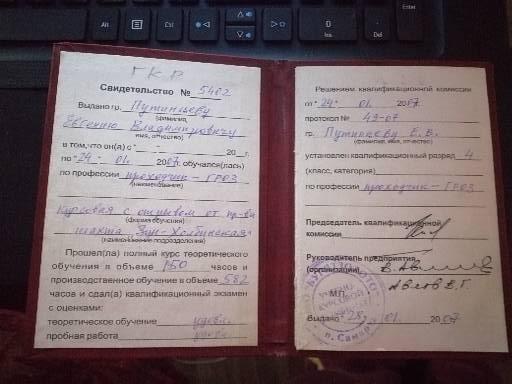 ГКР
Свидетельство № 5402
Выдано гр. Путинцеву
(фамилия,
Евгению Владимировичу
имя, отчество)
в том, что он(а) с " - 20 г.
по "24" 01 2007 г. обучался(лась)
по профессии проходчик-ГРОЗ
(наименование)
Курсовая с отрывом от пр-ва
(форма обучения)
шахта Зун-Холбинская
(наименование подразделения)
Прошел(ла) полный курс теоретического
обучения в объеме 150 часов и
производственное обучение в объеме 582
часов и сдал(а) квалификационный экзамен
с оценками:
теоретическое обучение удовл.
пробная работа удовл.
Решением квалификационной комиссии
от "24" 01. 2007
протокол № 49-07
гр. Путинцеву Е.В.
(фамилия, имя, отчество)
установлен квалификационный разряд 4
(класс, категория)
по профессии проходчик-ГРОЗ
Председатель квалификационной
комиссии
Руководитель предприятия
(организации)
М.П.
Выдано "28" 01. 2007